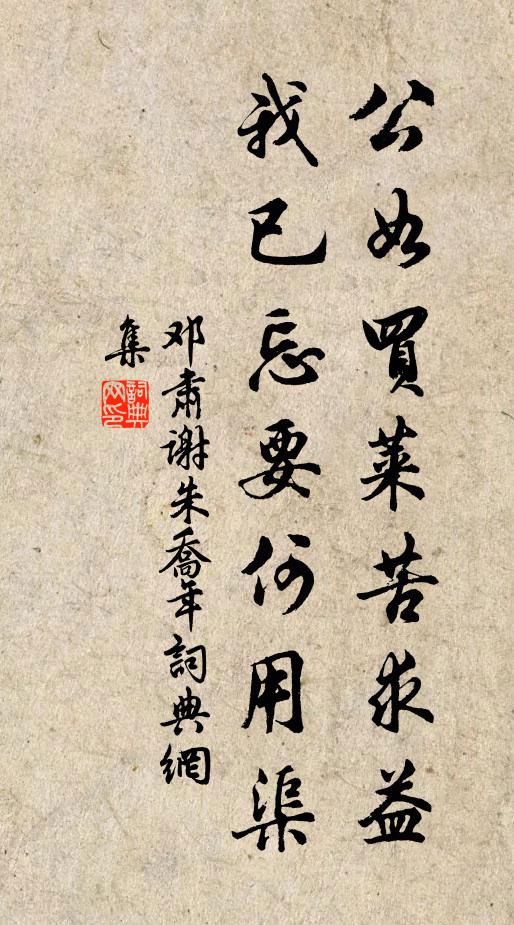 公如買菜苦求益
我已忘要何用渠
邓肅谢朱喬年詞典網
集
詞典
网印